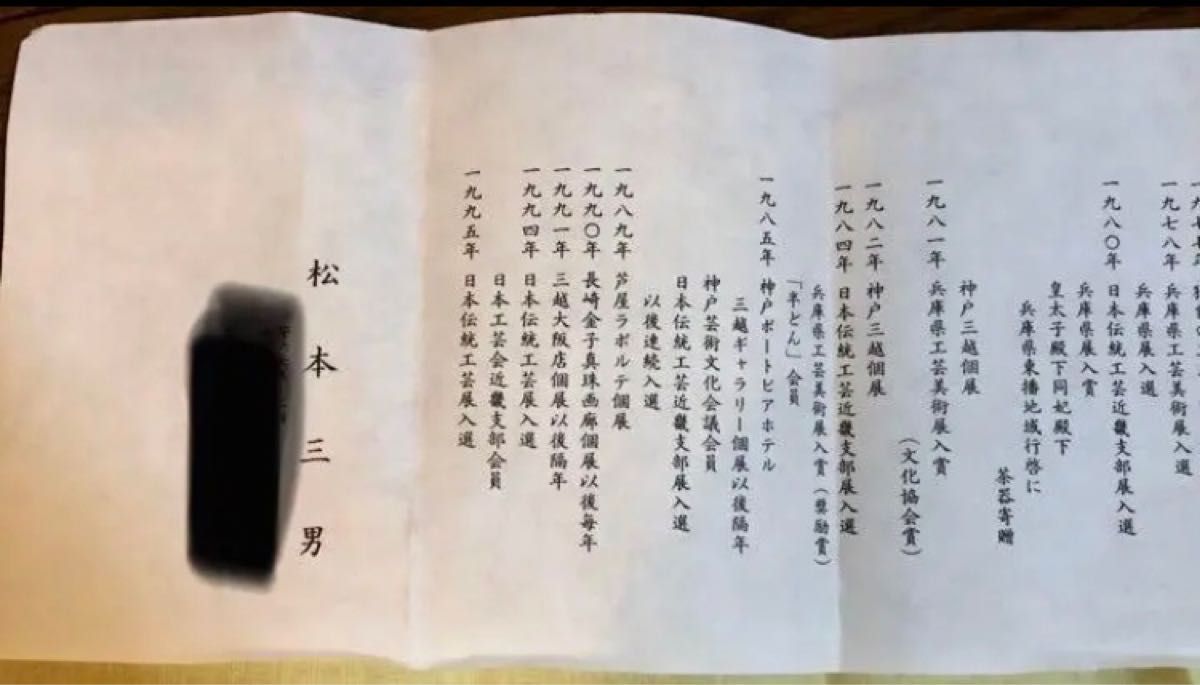 一九七八年 兵庫県工芸美術展入選
兵庫県展入選
一九八〇年 日本伝統工芸近畿支部展入選
兵庫県展入賞
皇太子殿下同妃殿下
兵庫県東播地域行啓に
茶器寄贈
神戸三越個展
一九八一年 兵庫県工芸美術展入賞
(文化協会賞)
一九八二年 神戸三越個展
一九八四年 日本伝統工芸近畿支部展入選
兵庫県工芸美術展入賞(奨励賞)
会員
一九八五年 神戸ポートピアホテル
三越ギャラリー個展以後隔年
神戸芸術文化会議会員
日本伝統工芸近畿支部展入選
以後連続入選
一九八九年 芦屋ラポルテ個展
一九九〇年 長崎金子真珠画廊個展以後毎年
一九九一年 三越大阪店個展以後隔年
一九九四年 日本伝統工芸展入選
日本工芸会近畿支部会員
一九九五年 日本伝統工芸展入選
松本三男